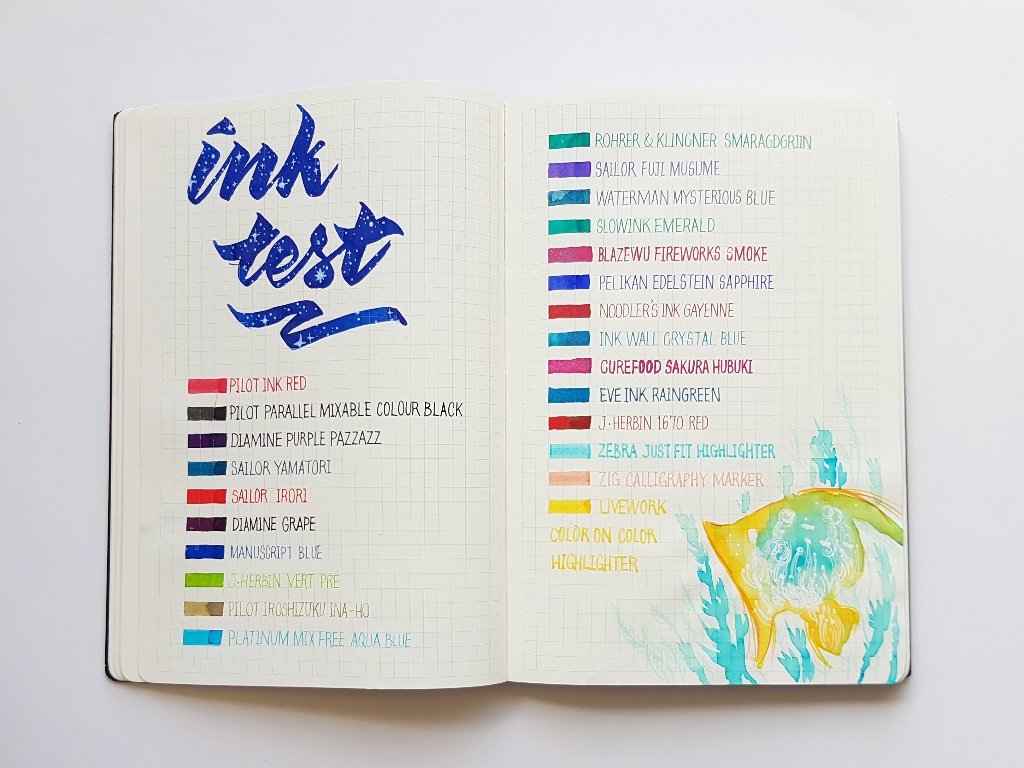 ink
test
PILOT INK RED
PILOT PARALLEL MIXABLE COLOUR BLACK
DIAMINE PURPLE PAZZAZZ
SAILOR YAMATORI
SAILOR IRORI
DIAMINE GRAPE
MANUSCRIPT BLUE
J·HERBIN VERT PRÉ
PILOT IROSHIZUKU INA-HO
PLATINUM MIX FREE AQUA BLUE
ROHRER & KLINGNER SMARAGDGRÜN
SAILOR FUJI MUSUME
WATERMAN MYSTERIOUS BLUE
SLOWINK EMERALD
BLAZEWU FIREWORKS SMOKE
PELIKAN EDELSTEIN SAPPHIRE
NOODLER'S INK CAYENNE
INK WALL CRYSTAL BLUE
CUREFOOD SAKURA HUBUKI
EVE INK RAINGREEN
J·HERBIN 1670 RED
ZEBRA JUST FIT HIGHLIGHTER
ZIG CALLIGRAPHY MARKER
LIVEWORK
COLOR ON COLOR
HIGHLIGHTER